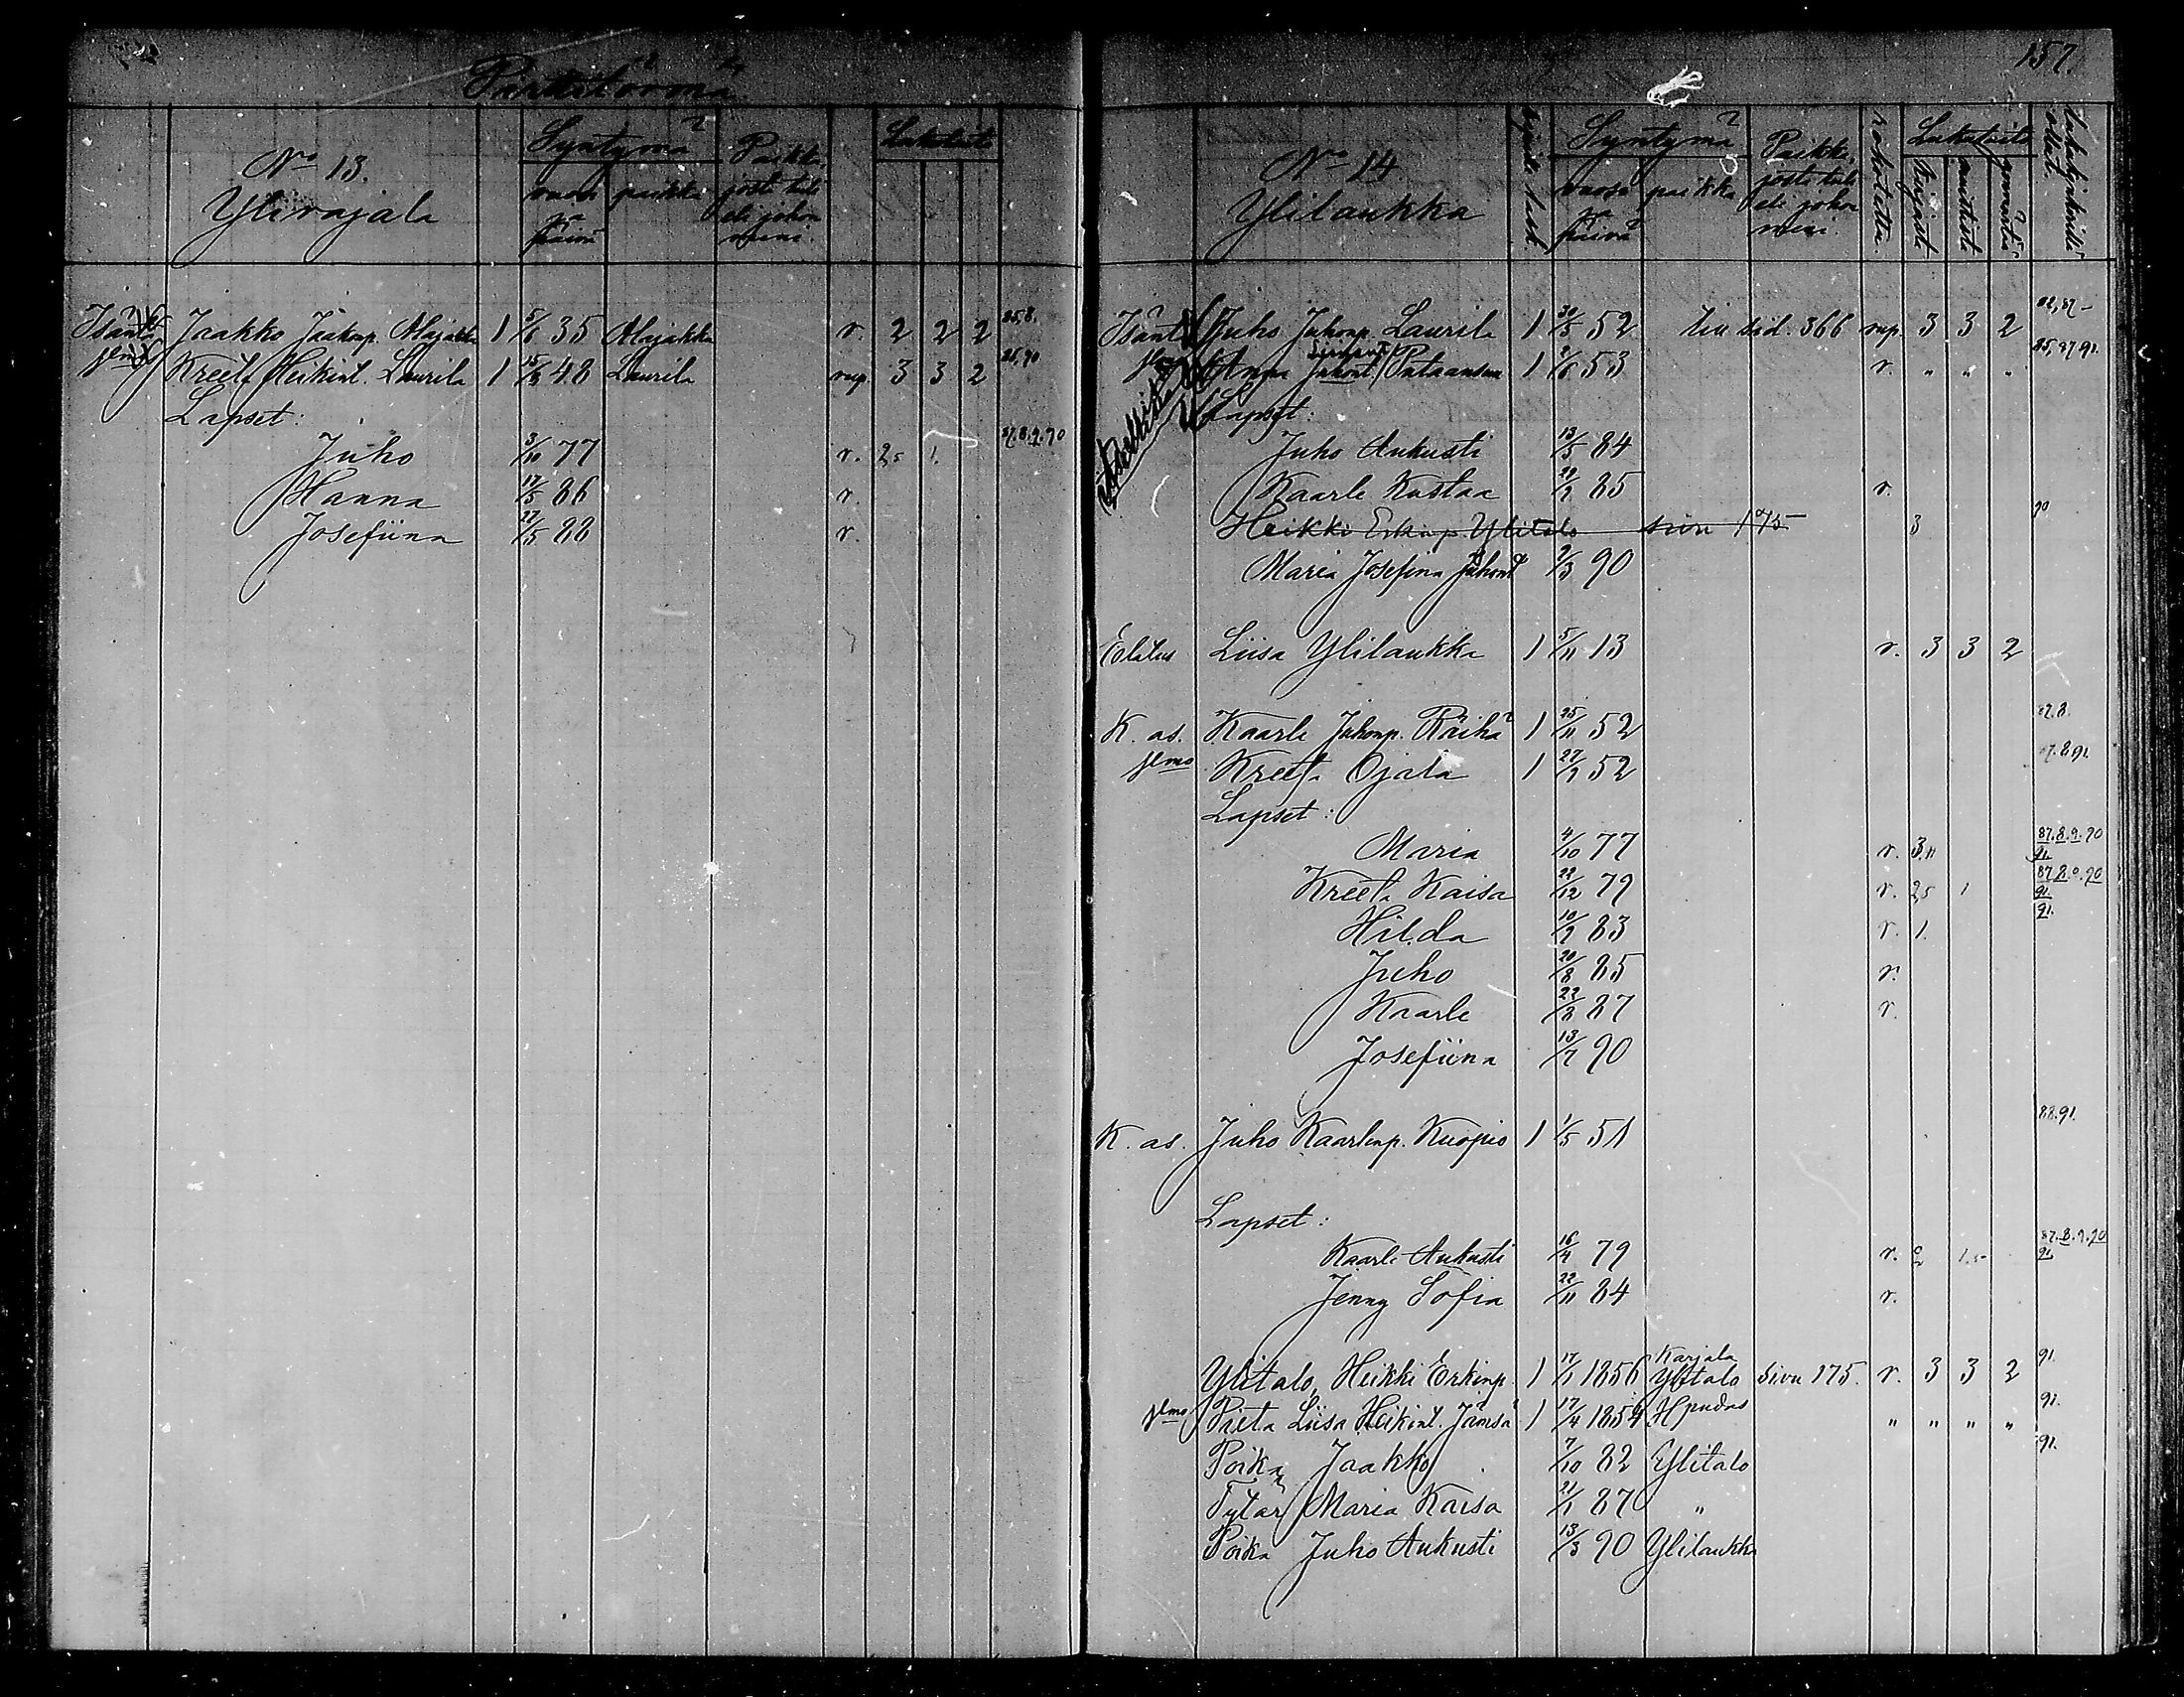 Pirttitörmä
Nº 13.
Ylirajala
Syntymä
vuosi ja päivä
paikka
Paikka, josta tuli eli johon meni.
Lukutaito
Isäntä Jaakko Jaakonp. Alajakka 1 5/6 35 Alajakka r. 2 2 2 85,8.
Kreeta Heikint. Laurila 1 15/8 48 Laurila rup. 3 3 2 85,90
Lapset:
Juho 3/10 77 r. 2,5 1. 87.8.9.90
Hanna 17/5 86 r.
Josefiina 27/5 88 r.
157.
Nº 14
Ylilaukka
Syntymä
vuosi ja päivä
paikka
Paikka, josta tuli eli johon meni.
rokotettu
Lukutaito
kirjasta
muistista
ymmärtää
lukukinkerillä ollut.
Isäntä Juho Juhonp. Laurila 1 30/5 52 sid. 366 rup. 3 3 2 82,87-
Anna Juhont. 1 2/6 53 r. " " " 85,87.91.
Lapset:
Juho Aukusti 13/5 84
Kaarle Kustaa 29/9 85 r.
Heikki Erkinp. Ylitalo sivu 175 3 90
Maria Josefina Juhont 2/3 90
Elätus Liisa Ylilaukka 1 5/11 13 r. 3 3 2
K. as. Kaarle Juhonp. Räihä 1 25/11 52 87.8.
Kreeta Ojala 1 27/9 52 87.8.91.
Lapset:
Maria 4/10 77 r. 3,11 87.8.9.90 91.
Kreeta Kaisa 22/12 79 r. 2,5 1 87.8.9.90 91.
Hilda 10/9 83 r. 1. 91.
Juho 20/8 85 r.
Kaarle 22/8 87 r.
Josefiina 13/7 90
K. as. Juho Kaarlenp. Kuopio 1 1/5 51 88.91.
Lapset:
Kaarle Aukusti 16/4 79 r. 2 1.5 87.8.9.90 91.
Jenny Sofia 22/11 84 r.
Ylitalo, Heikki Erkinp. 1 17/1 1856 Karjala Ylitalo sivu 175. r. 3 3 2 91.
Pieta Liisa Heikint. Jämsä 1 17/4 1854 Hpudas " " " " 91.
Poika Jaakko 7/10 82 Ylitalo 91.
Tytär Maria Kaisa 21/1 87 "
Poika Juho Aukusti 13/3 90 Ylilaukka